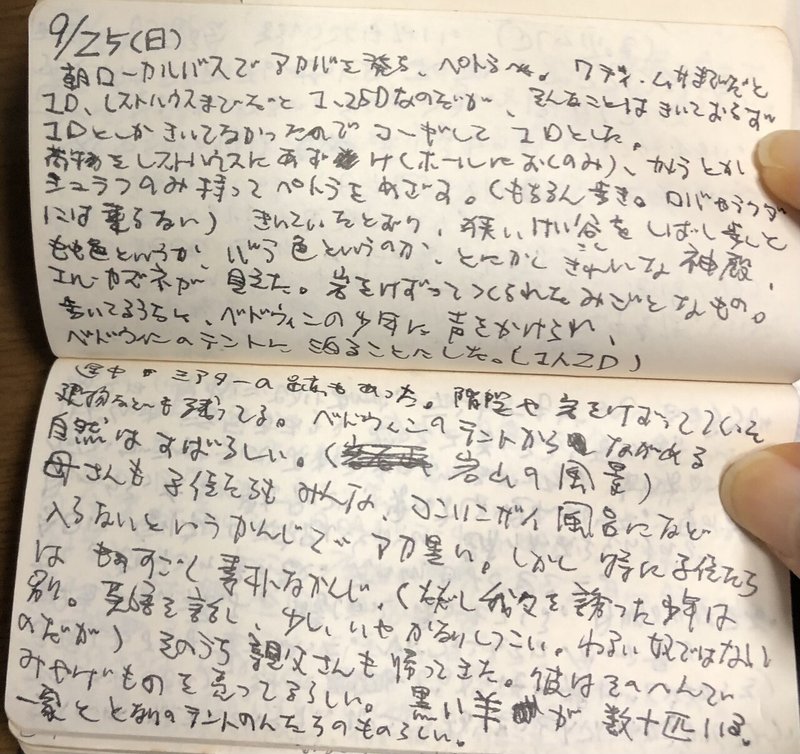 9/25(日)
朝ローカルバスでアカバを発ち、ペトラへ。ワディ・ムサまでだと
1D、レストハウスまでだと1.25Dなのだが、そんなことはきいておらず
1Dとしかきいてなかったのでコーギして1Dとした。
荷物をレストハウスにあずけ(ホールにおくのみ)、かうとか
シュラフのみ持ってペトラをめざす。(もちろん歩き。ロバやラクダ
には乗らない)きいていたとおり、狭いけい谷をしばし歩くと
もも色というか、バラ色というのか、とにかくきれいな神殿、
エル・カズネが見えた。岩をけずってつくられたみごとなもの。
歩いてるうちに、ベドウィンの少年に声をかけられ、
ベドウィンのテントに泊ることにした。(1人2D)
途中 シアターの もあった。階段や岩をけずってていそ
建物なども残ってる。ベドウィンのテントから ながめる
自然はすばらしい。(岩山の風景)
母さんも子供たちもみんな、 風呂になど
入らないというかんじでアカ黒い。しかし特に子供たち
はものすごく素朴なかんじ。(ただし我々を誘った少年は
別。英語を話し、少し、いやかなりしつこい。わるい奴ではない
のだが)そのうち親父さんも帰ってきた。彼はそのへんで
みやげものを売ってるらしい。黒い羊が数十匹いる。
一家ととなりのテントの人たちのものらしい。